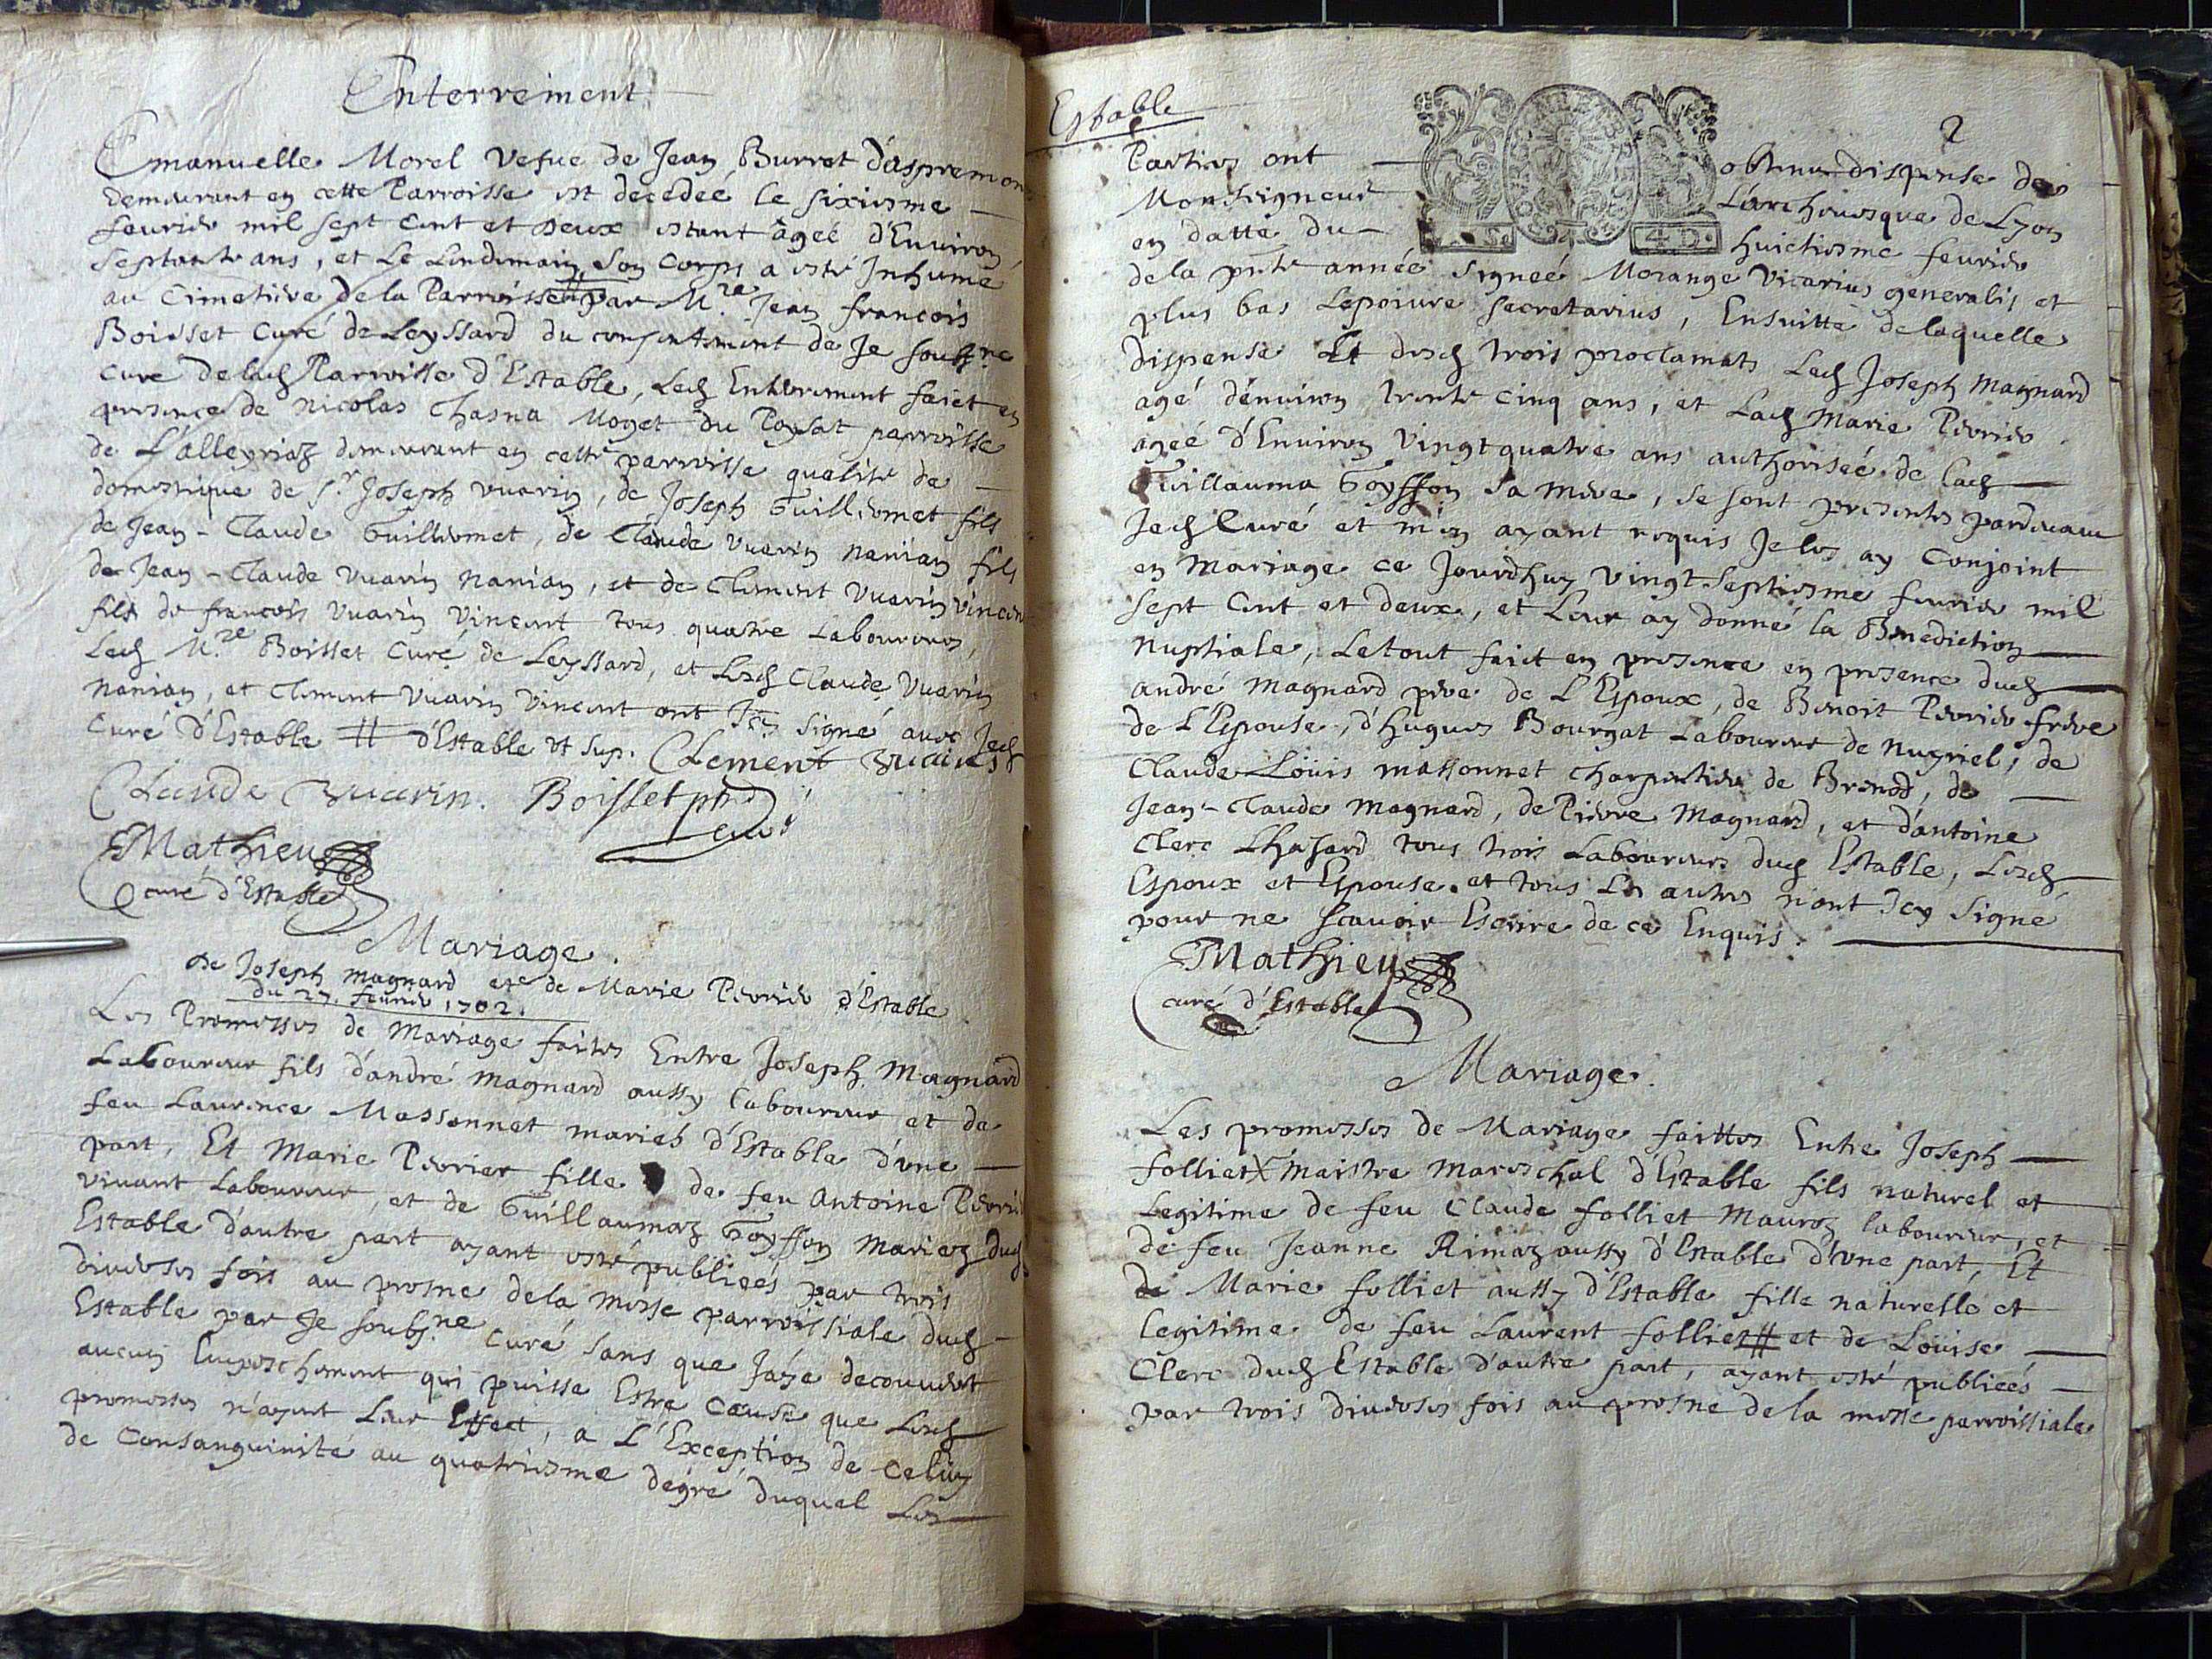 Enterrement
Emanuelle Morel vefue de Jean Burret d'aspremon
demeurant en cette Parroisse est decedeé le sixiesme
feurier mil sept cent et deux estant âgeé d'Enuiron
septante ans, et Le Lendemain, son corps a esté Inhumé
au Cimetiere de la Parroisse # par M.re Jean francois
Boisset Curé de Leyssard du consentement de Je soubs.né
Curé de lad Parroisse d'Estable, Led Enterrement faict en
presence de Nicolas Chasna Moget du Poysat parroisse
de L'alleyriaz demeurant en cette parroisse qualité de
domestique de s.r Joseph vuarin, de Joseph Guillermet fils
de Jean-Claude Guillermet, de Claude vuarin Nanian fils
de Jean-Claude Vuarin Nanian, et de Clement Vuarin Vincen
fils de francois Vuarin Vincent tous quatre Laboureurs,
Led M.re Boisset Curé de Leyssard, et Lesd Claude Vuarin
Nanian, et Clement Vuarin Vincent ont Icy signé auec Jed
Curé d'Estable # d'Estable ut sup. Clement vuarin
Claude vuarin. Boisset
Mathieu
curé d'Estable
Mariage.
de Joseph Magnard et de Marie Perrier d'Estable
du 27. feurier 1702.
Les Promesses de Mariage faites Entre Joseph Magnard
Laboureur fils d'andré Magnard aussy Laboureur et de
feu Laurence Massonnet mariés d'Estable d'vne
part, Et Marie Perrier fille de feu Antoine Perrier
viuant Laboureur, et de Guillaumaz Goyffon Mariez dud
Estable d'autre part ayant esté publieés par trois
diuerses fois au prosne de la Messe parroissiale dud
Estable par Je soubs.né Curé sans que J'aÿe decouuert
aucun Empeschement qui puisse Estre Cause que Lesd
promesses n'ayent Leur Effect, a L'Exception de Celuy
de Consanguinité au quatriesme degré duquel Les
Estable
2
Parties ont obtenu dispense de
Monseigneur L'archeuesque de Lyon
en datte du huictiesme feurier
de la pnte année signeé Morange Vicarius generalis, et
plus bas Lepoiure secretarius, Ensuitte de laquelle
dispense Et desd trois proclamats Led Joseph Magnard
agé d'enuiron trente cinq ans, et Lad Marie Perrier
ageé d'Enuiron Vingt quatre ans authoriseé de Lad
Guillauma Goyffon sa Mere, se sont presentés pardeuant
Jed Curé et m'en ayant requis Je les ay Conjoint
en Mariage ce Jourdhuy vingt septiesme feurier mil
sept cent et deux, et Leur ay donné la Benediction
Nuptiale, Le tout faict en presence en presence dud
andré Magnard pere de L'Espoux, de Benoit Perrier frere
de L'Espouse, d'hugues Bourgat Laboureur de Nuyriel, de
Claude-Loüis massonnet charpentier de Brenod, de
Jean-Claude Magnard, de Pierre Magnard, et d'antoine
Clerc Lhasard tous trois Laboureurs dud Estable, Lesd
Espoux et Espouse et tous Les autres n'ont Icy signé
pour ne scauoir Escrire de ce Enquis.
Mathieu
curé d'Estable
Mariage.
Les promesses de Mariage faittes Entre Joseph
folliet X Maistre Mareschal d'Estable fils naturel et
Legitime de feu Claude folliet Mauroz laboureur, et
de feu Jeanne Rimaz aussy d'Estable d'vne part, Et
de Marie folliet aussy d'Estable fille naturelle et
legitime de feu Laurent folliet # et de Loüise
Clerc dud Estable d'autre part, ayant esté publieés
par trois diuerses fois au prosne de la messe parroissiale